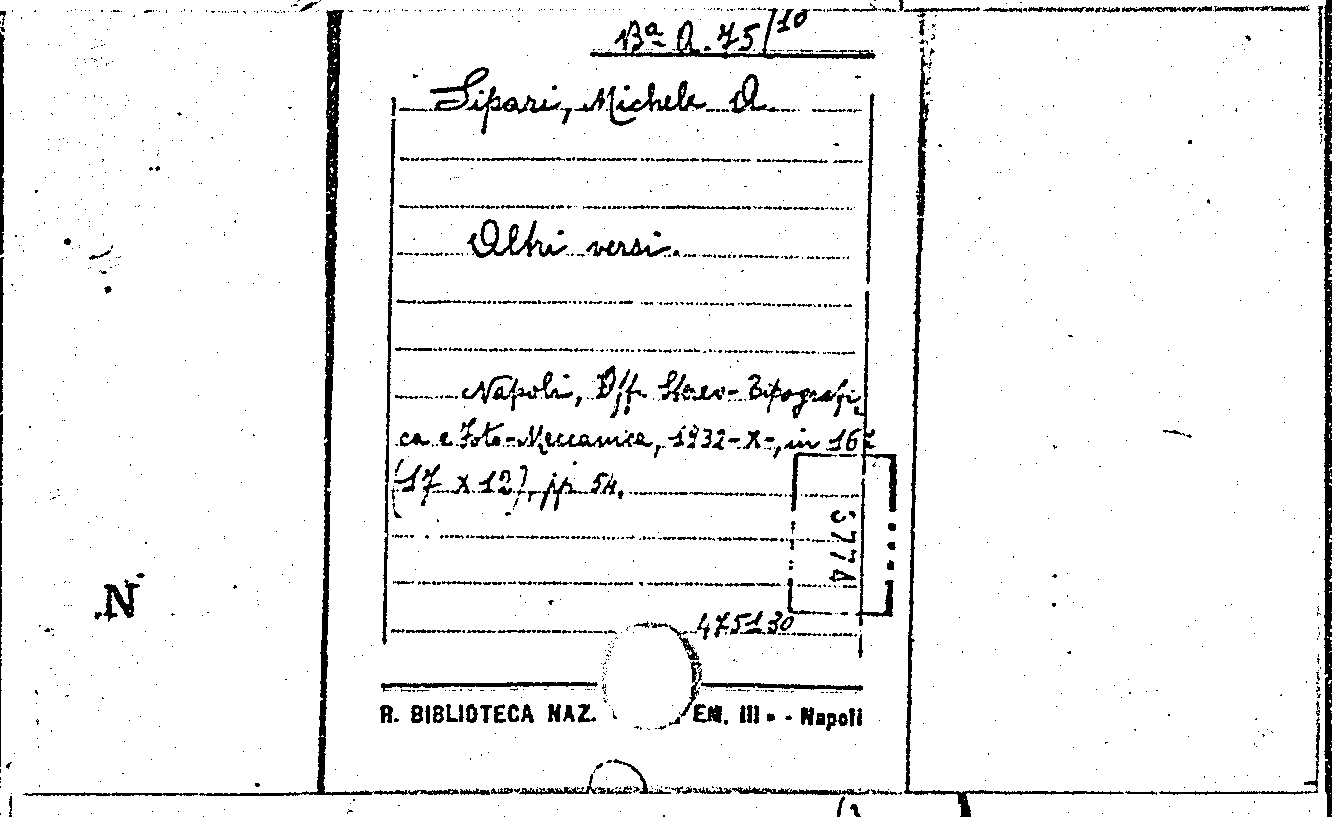 Ba A. 75/10
Sipari, Michele A.
Altri versi.
Napoli, Off. Stereo-Tipografi
ca e Foto-Meccanica, 1932-X-, in 16°
(17 x 12), pp. 54.
5774
475130
R. BIBLIOTECA NAZ. EM. III - - Napoli
N